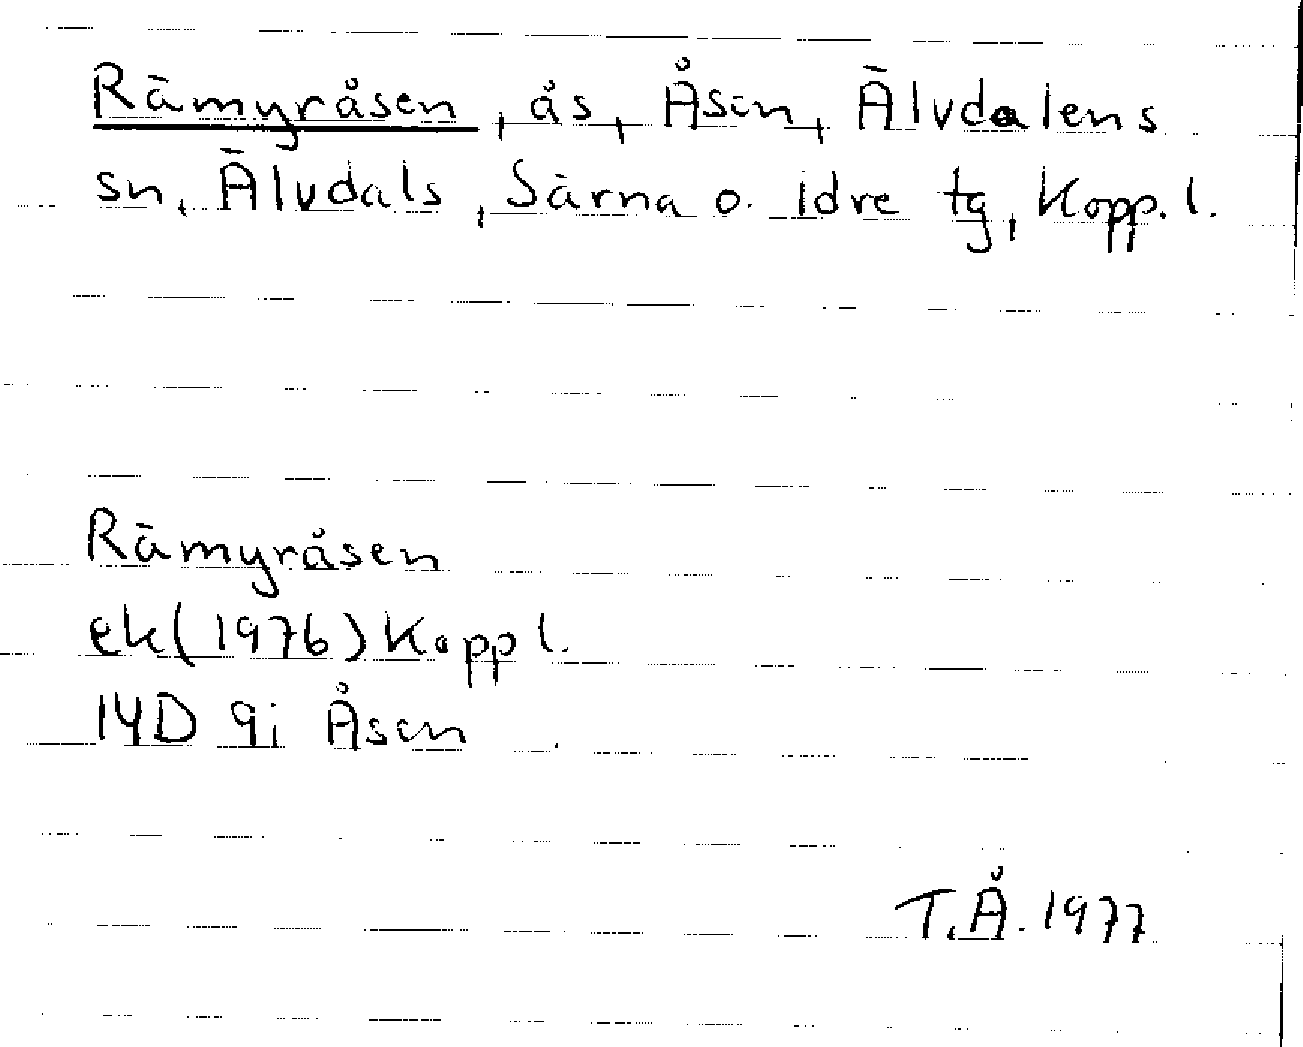 Rämyråsen, ås, Åsen, Älvdalens
sn, Älvdals, Särna o. Idre tg, Kopp. l.
Rämyråsen
ek(1976) Kopp l.
14D 9i Åsen
T.Å. 1977